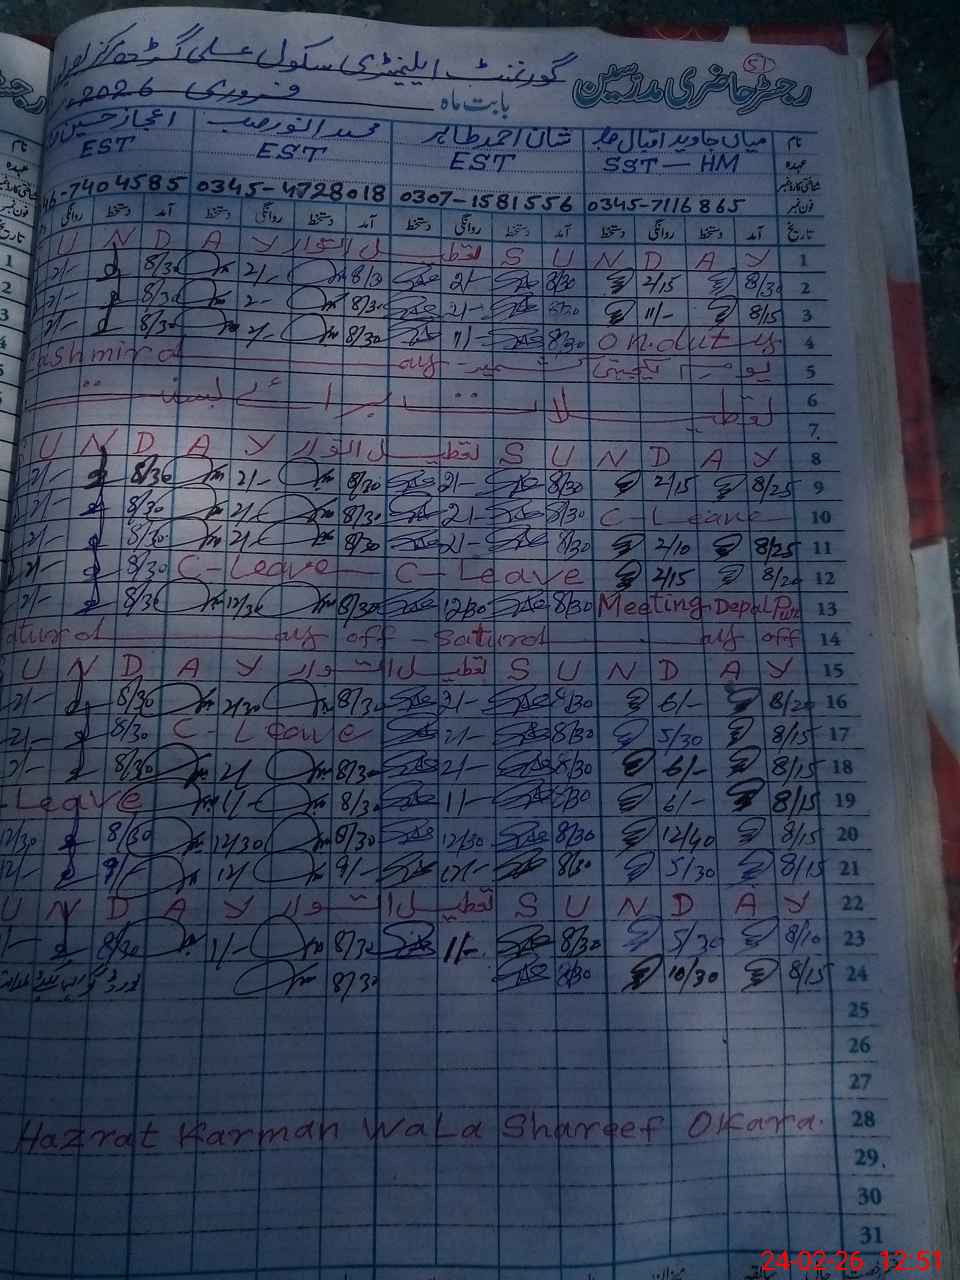 51
رجسٹر حاضری مدرسین
گورنمنٹ ایلیمنٹری سکول علی گڑھ مرکز
بابت ماہ فروری 2026
نام میاں جاوید اقبال شان احمد طاہر محمد انور اعجاز حسین
عہدہ SST - HM EST EST EST
فون نمبر 0345-7116865 0307-1581556 0345-4728018 46-7404585
تاریخ آمد دستخط روانگی دستخط آمد دستخط روانگی دستخط آمد دستخط روانگی دستخط آمد دستخط روانگی
U N D A Y تعطیل اتوار S U N D A Y 1
2/- 8/30 2/- 8/30 2/- 8/30 2/15 8/30 2
2/- 8/30 2- 8/30 2/- 8/30 11/- 8/15 3
2/- 8/30 2/- 8/30 11/- 8/30 On.duty 4
ashmird ay یوم یکجہتی کشمیر 5
تعطیلات برائے بسنت 6
7
U N D A Y تعطیل اتوار S U N D A Y 8
2/- 8/30 2/- 8/30 2/- 8/30 2/15 8/25 9
2/- 8/30 2/- 8/30 2/- 8/30 C-Leave 10
2/- 8/30 2/- 8/30 2/- 8/30 2/10 8/25 11
2/- 8/30 C-Leave C-Leave 2/15 8/20 12
2/- 8/30 12/30 8/30 12/30 8/30 Meeting Depal Pur 13
aturd ay off - Saturd ay off 14
U N D A Y تعطیل اتوار S U N D A Y 15
2/- 8/30 2/30 8/30 2/- 8/30 6/- 8/20 16
2/- 8/30 C-Leave 2/- 8/30 5/30 8/15 17
2/- 8/30 2/ 8/30 2/- 8/30 6/- 8/15 18
-Leave 1/- 8/30 1/- 8/30 6/- 8/15 19
12/30 8/30 12/30 8/30 12/30 8/30 12/40 8/15 20
12/- 9/- 12/ 9/- 12/- 8/30 5/30 8/15 21
U N D A Y تعطیل اتوار S U N D A Y 22
1/- 8/30 1/- 8/30 1/- 8/30 5/30 8/10 23
8/30 8/30 10/30 8/15 24
25
26
27
Hazrat Karman Wala Shareef Okara. 28
29
30
31
24-02-26 12:51